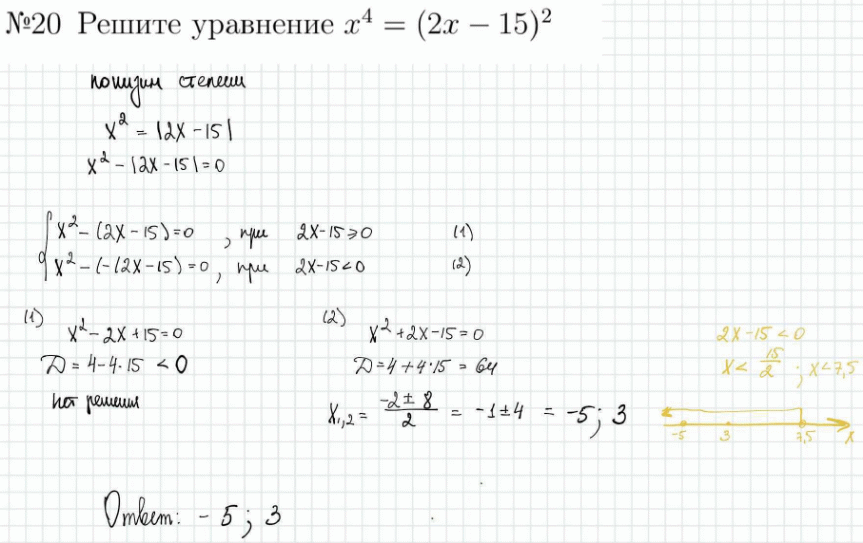 №20 Решите уравнение x⁴ = (2x − 15)²
понизим степени
x² = |2x − 15|
x² − |2x − 15| = 0
x² − (2x − 15) = 0 , при 2x − 15 ⩾ 0 (1)
x² − (−(2x − 15) = 0 , при 2x − 15 < 0 (2)
(1)
x² − 2x + 15 = 0
D = 4 − 4·15 < 0
нет решения
(2)
x² + 2x − 15 = 0
D = 4 + 4·15 = 64
x₁,₂ = (−2 ± 8)/2 = −1 ± 4 = −5; 3
2x − 15 < 0
x < 15/2 ; x < 7,5
−5 3 7,5 x
Ответ: − 5 ; 3